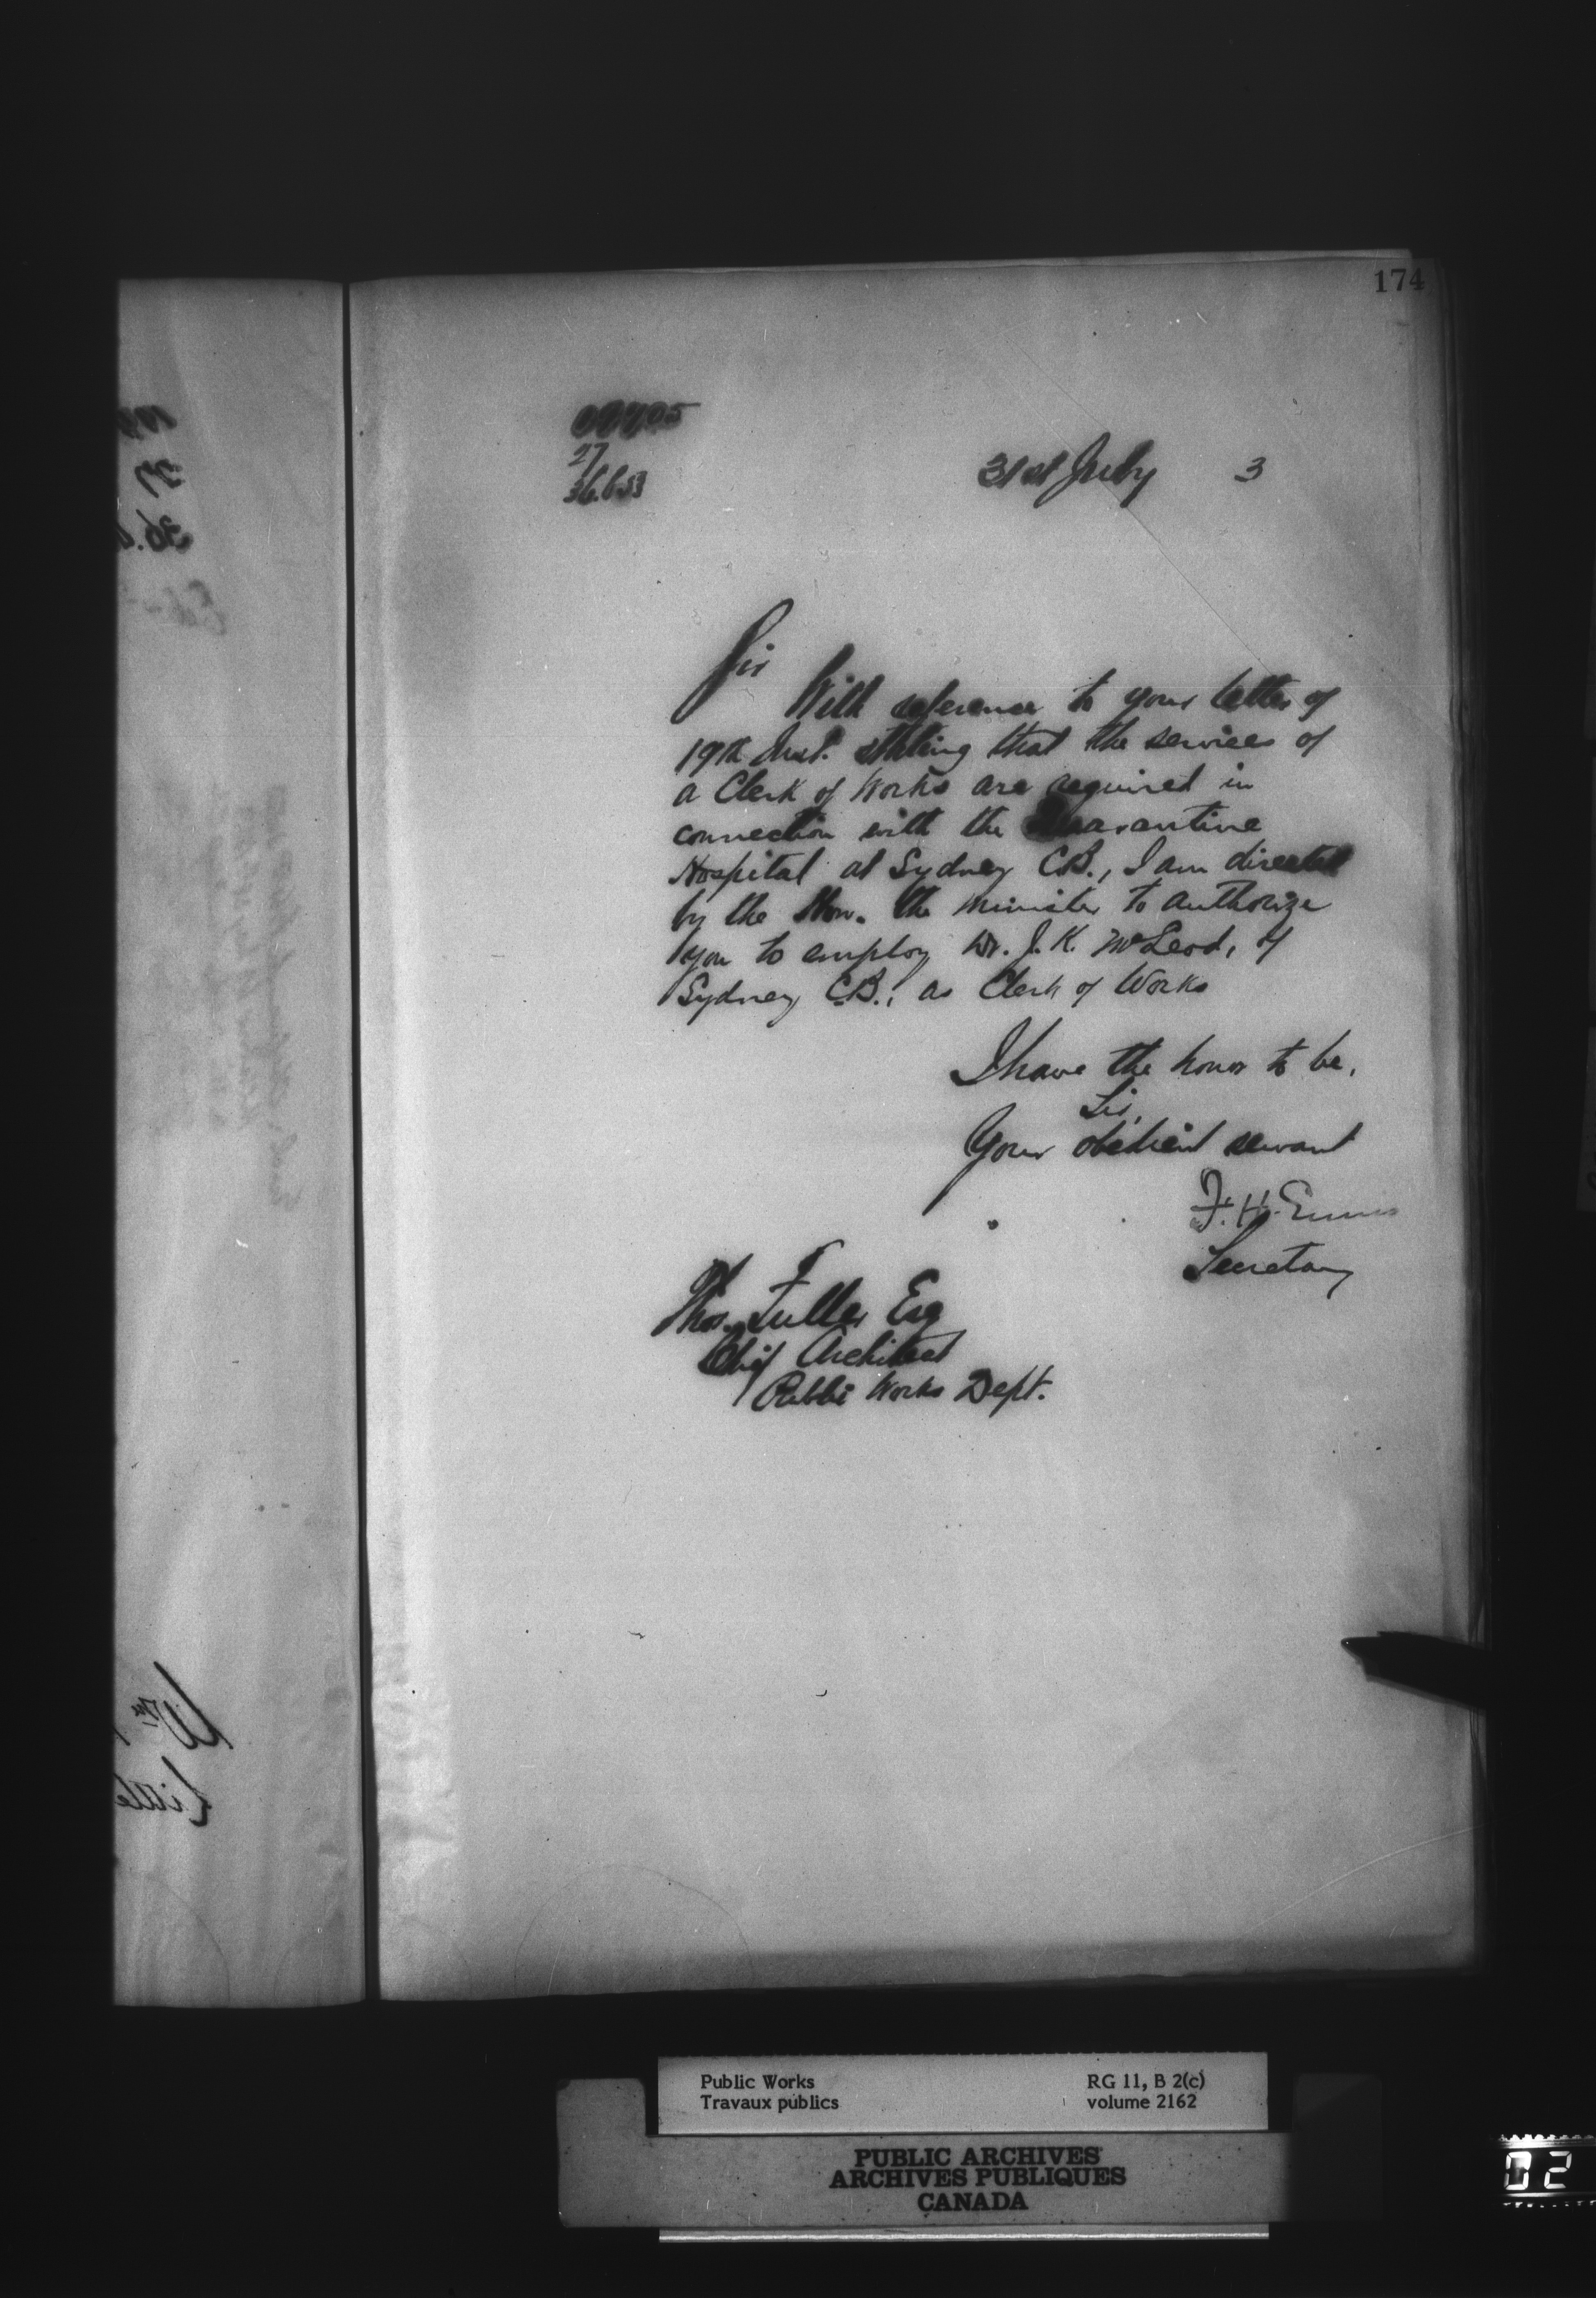 174
27
36.653
31st July 3
Sir
With reference to your letter of
19th Inst. stating that the services of
a Clerk of Works are required in
connection with the Quarantine
Hospital at Sydney C.B., I am directed
by the Hon. the Minister to authorize
you to employ Dr. J. K. McLeod, of
Sydney C.B., as Clerk of Works
I have the honor to be,
Sir,
Your obedient servant
F. H. Ennis
Secretary
Thos. Fuller Esq
Chief Architect
Public Works Dept.
Public Works
Travaux publics
RG 11, B 2(c)
volume 2162
PUBLIC ARCHIVES
ARCHIVES PUBLIQUES
CANADA
02